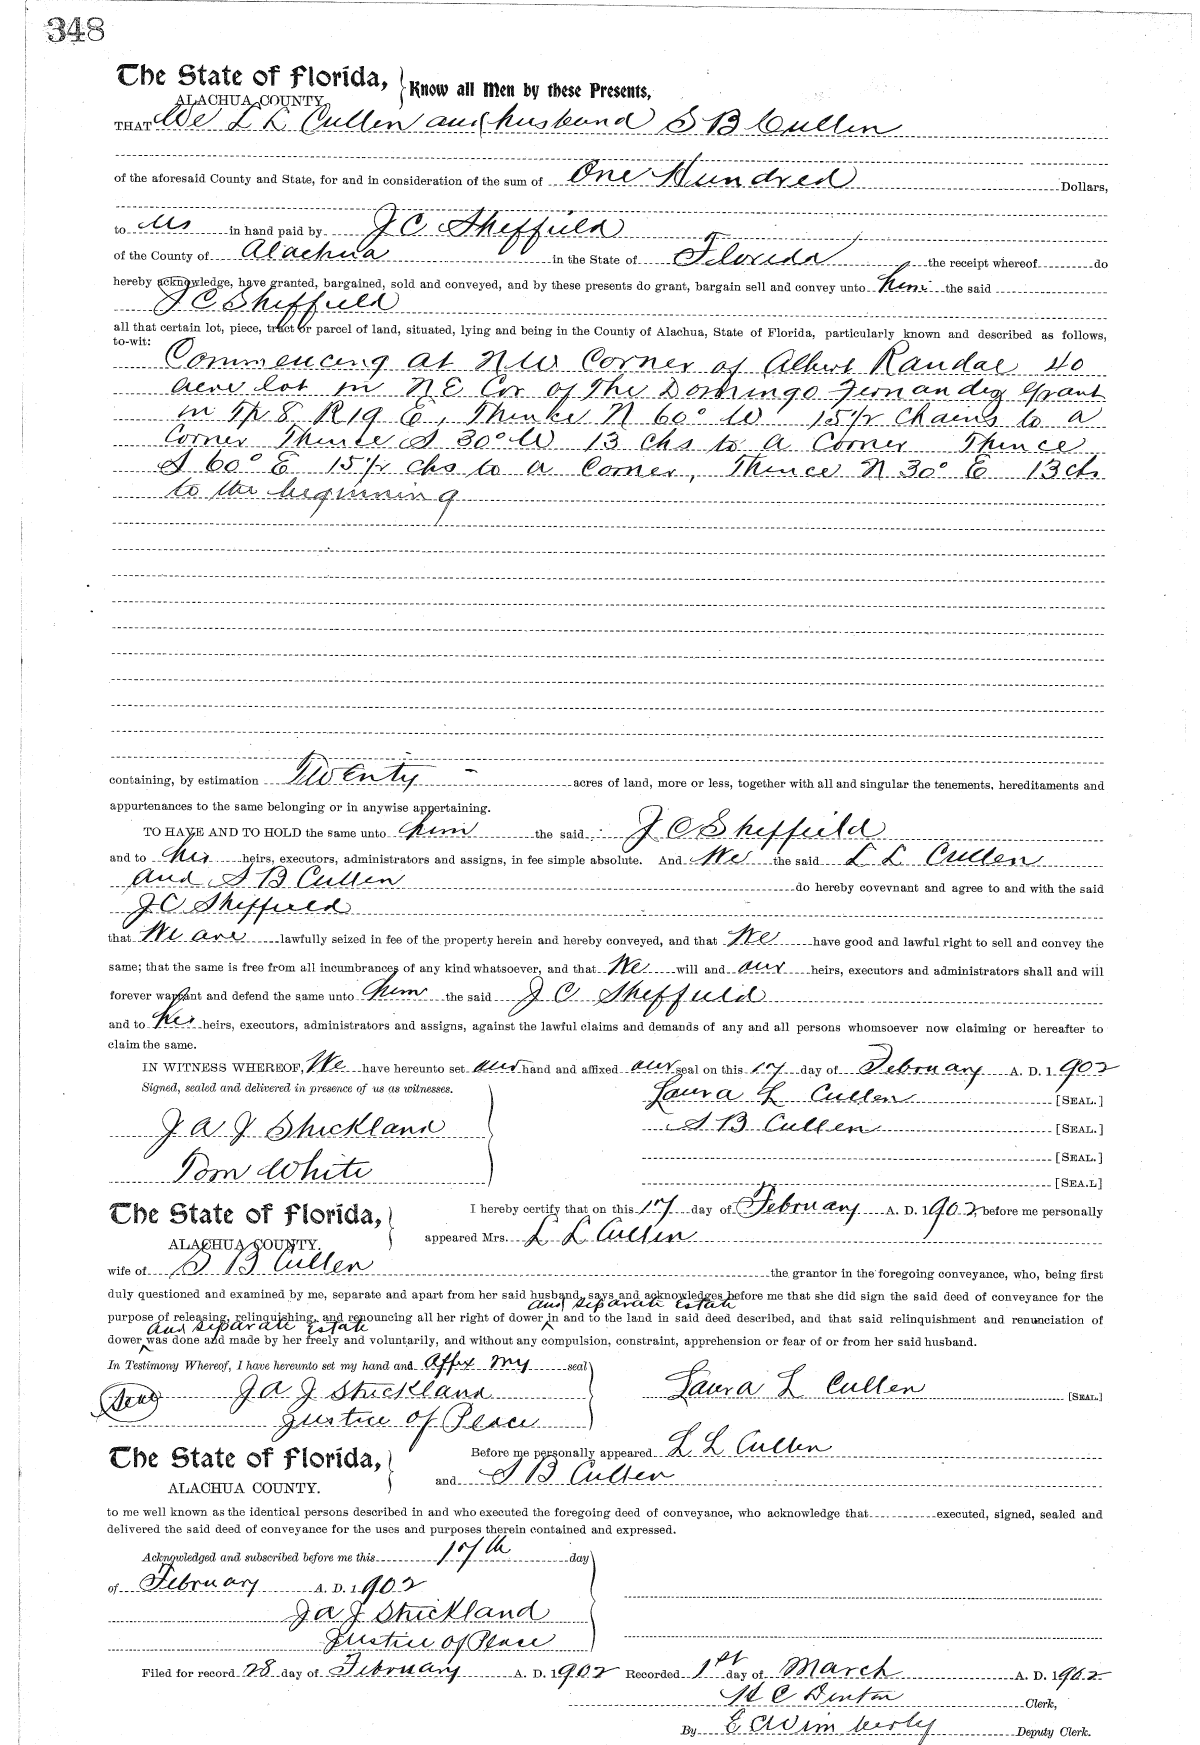 348
The State of Florida, Know all Men by these Presents,
ALACHUA COUNTY
THAT We L L Cullen and husband S B Cullen
of the aforesaid County and State, for and in consideration of the sum of One Hundred Dollars,
to us in hand paid by J C Sheffield
of the County of Alachua in the State of Florida the receipt whereof do
hereby acknowledge, have granted, bargained, sold and conveyed, and by these presents do grant, bargain sell and convey unto him the said
J C Sheffield
all that certain lot, piece, tract or parcel of land, situated, lying and being in the County of Alachua, State of Florida, particularly known and described as follows,
to-wit:
Commencing at NW Corner of Albert Randal 40
acre lot in NE Cor of The Domingo Fernandez Grant
in Tp 8 R 19 E, Thence N 60° W 15 1/2 Chains to a
Corner Thence S 30° W 13 chs to a Corner Thence
S 60° E 15 1/2 chs to a Corner, Thence N 30° E 13 chs
to the beginning
containing, by estimation Twenty - acres of land, more or less, together with all and singular the tenements, hereditaments and
appurtenances to the same belonging or in anywise appertaining.
TO HAVE AND TO HOLD the same unto him the said J C Sheffield
and to his heirs, executors, administrators and assigns, in fee simple absolute. And We the said L L Cullen
and S B Cullen do hereby covevnant and agree to and with the said
J C Sheffield
that We are lawfully seized in fee of the property herein and hereby conveyed, and that We have good and lawful right to sell and convey the
same; that the same is free from all incumbrances of any kind whatsoever, and that We will and our heirs, executors and administrators shall and will
forever warrant and defend the same unto him the said J C Sheffield
and to his heirs, executors, administrators and assigns, against the lawful claims and demands of any and all persons whomsoever now claiming or hereafter to
claim the same.
IN WITNESS WHEREOF, We have hereunto set our hand and affixed our seal on this 17 day of February A. D. 1902
Signed, sealed and delivered in presence of us as witnesses. Laura L Cullen [SEAL.]
J A J Strickland S B Cullen [SEAL.]
[SEAL.]
Tom White
[SEA.L]
The State of Florida, I hereby certify that on this 17 day of February A. D. 1902 before me personally
ALACHUA COUNTY. appeared Mrs. L L Cullen
wife of S B Cullen the grantor in the foregoing conveyance, who, being first
duly questioned and examined by me, separate and apart from her said husband, says and acknowledges before me that she did sign the said deed of conveyance for the
and separate Estate
purpose of releasing, relinquishing, and renouncing all her right of dower ^ in and to the land in said deed described, and that said relinquishment and renunciation of
and separate Estate
dower ^ was done and made by her freely and voluntarily, and without any compulsion, constraint, apprehension or fear of or from her said husband.
In Testimony Whereof, I have hereunto set my hand and Affix my seal
Seal J A J Strickland Laura L Cullen [SEAL]
Justice of Peace
The State of Florida, Before me personally appeared L L Cullen
ALACHUA COUNTY. and S B Cullen
to me well known as the identical persons described in and who executed the foregoing deed of conveyance, who acknowledge that executed, signed, sealed and
delivered the said deed of conveyance for the uses and purposes therein contained and expressed.
Acknowledged and subscribed before me this 17th day
of February A. D. 1902
J A J Strickland
Justice of Peace
Filed for record 28 day of February A. D. 1902 Recorded 1st day of March A. D. 1902
H C Denton Clerk,
By E C Wimberly Deputy Clerk.